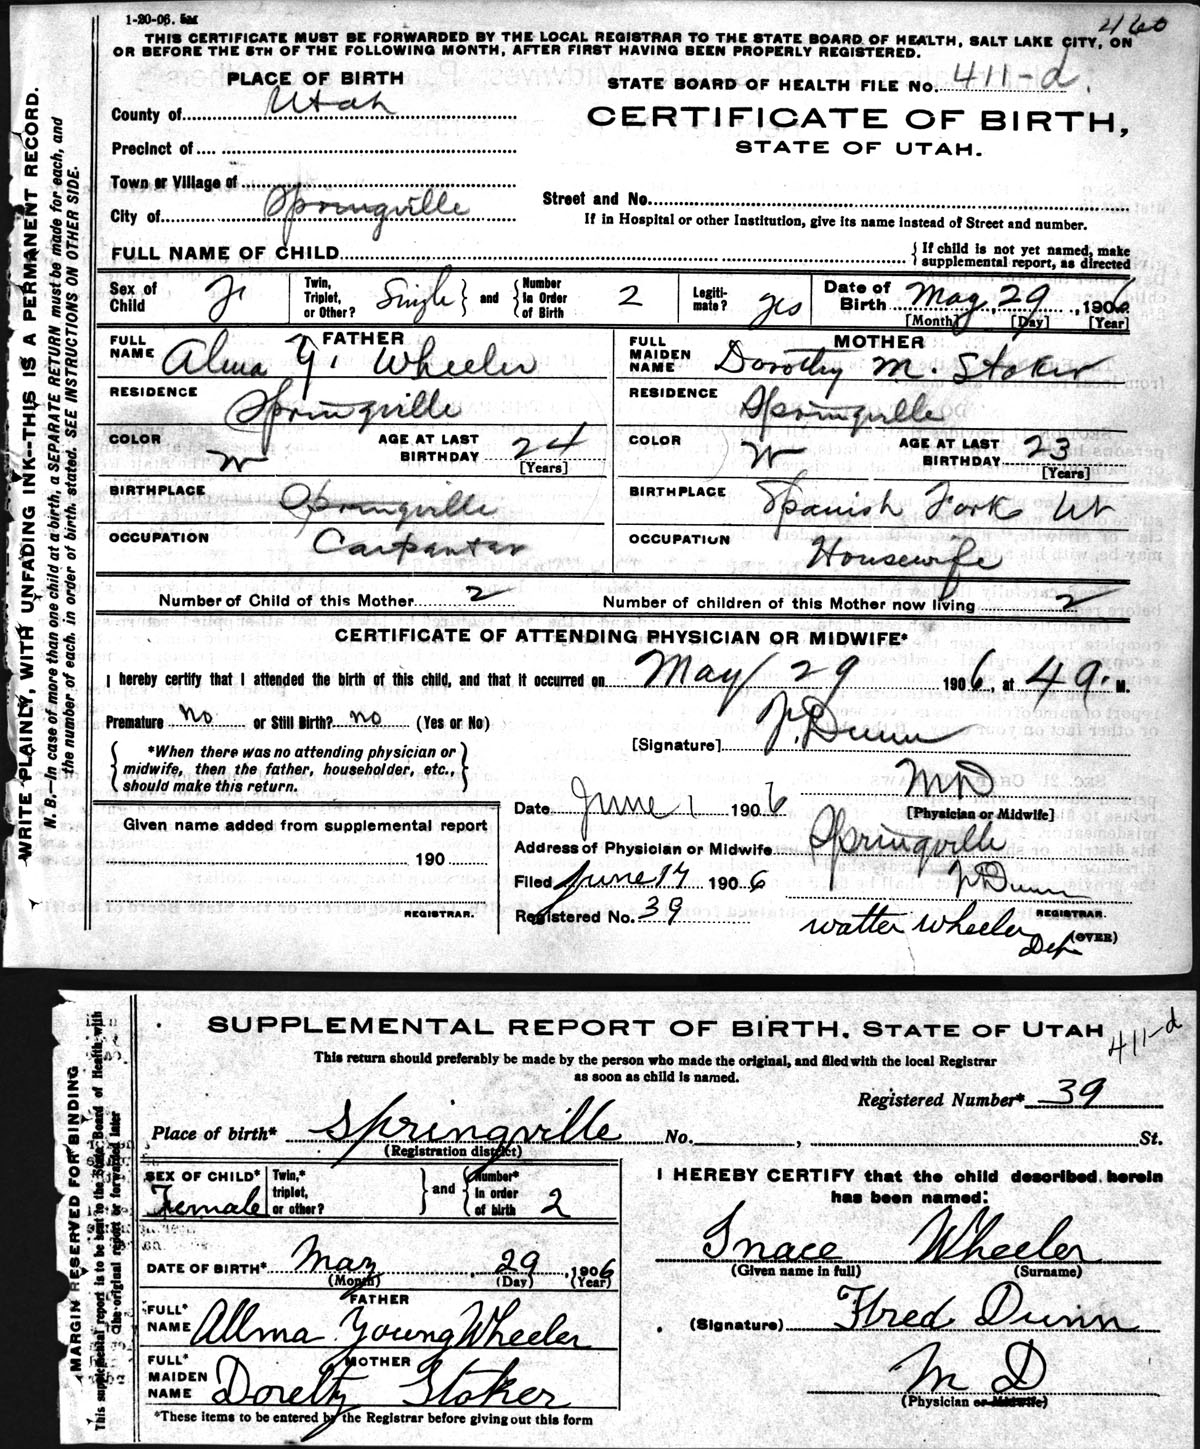 1-20-06. 5M
460
THIS CERTIFICATE MUST BE FORWARDED BY THE LOCAL REGISTRAR TO THE STATE BOARD OF HEALTH, SALT LAKE CITY, ON
OR BEFORE THE 5TH OF THE FOLLOWING MONTH, AFTER FIRST HAVING BEEN PROPERLY REGISTERED.
PLACE OF BIRTH
STATE BOARD OF HEALTH FILE No. 411-d.
County of Utah
CERTIFICATE OF BIRTH,
STATE OF UTAH.
Precinct of
Town or Village of
City of Springville
Street and No.
If in Hospital or other Institution, give its name instead of Street and number.
FULL NAME OF CHILD
{ If child is not yet named, make
supplemental report, as directed
Sex of Child F. Twin, Triplet, or Other? Single } and { Number in Order of Birth 2 Legiti-mate? yes Date of Birth May 29, 1906
[Month] [Day] [Year]
FATHER MOTHER
FULL NAME Alma Y. Wheeler FULL MAIDEN NAME Dorothy M. Stoker
RESIDENCE Springville RESIDENCE Springville
COLOR W AGE AT LAST BIRTHDAY 24 [Years] COLOR W AGE AT LAST BIRTHDAY 23 [Years]
BIRTHPLACE Springville BIRTHPLACE Spanish Fork Ut
OCCUPATION Carpenter OCCUPATION Housewife
Number of Child of this Mother 2 Number of children of this Mother now living 2
CERTIFICATE OF ATTENDING PHYSICIAN OR MIDWIFE*
I hereby certify that I attended the birth of this child, and that it occurred on May 29 1906, at 4 a. M.
Premature no or Still Birth? no (Yes or No)
[Signature] F. Dunn
{ *When there was no attending physician or
midwife, then the father, householder, etc.,
should make this return. }
M D
[Physician or Midwife]
Date June 1 1906
Given name added from supplemental report
Address of Physician or Midwife Springville
190
Filed June 14 1906 F Dunn
REGISTRAR.
Registered No. 39
REGISTRAR.
Walter Wheeler Dep
(OVER)
WRITE PLAINLY, WITH UNFADING INK—THIS IS A PERMANENT RECORD.
N. B.—In case of more than one child at a birth, a SEPARATE RETURN must be made for each, and
the number of each, in order of birth, stated. SEE INSTRUCTIONS ON OTHER SIDE.
SUPPLEMENTAL REPORT OF BIRTH, STATE OF UTAH
411-d
This return should preferably be made by the person who made the original, and filed with the local Registrar
as soon as child is named.
Registered Number* 39
Place of birth* Springville No. , St.
(Registration district)
SEX OF CHILD* Female Twin,* triplet, or other? } and { Number* in order of birth 2
I HEREBY CERTIFY that the child described herein
has been named:
Inace Wheeler
(Given name in full) (Surname)
DATE OF BIRTH* May 29, 1906
(Month) (Day) (Year)
FATHER
FULL* NAME Allma Young Wheeler
(Signature) Fred Dunn
MOTHER
FULL* MAIDEN NAME Dorelty Stoker
M D
(Physician or Midwife)
*These items to be entered by the Registrar before giving out this form
MARGIN RESERVED FOR BINDING
This supplemental report is to be sent to the State Board of Health with
the original report or forwarded later